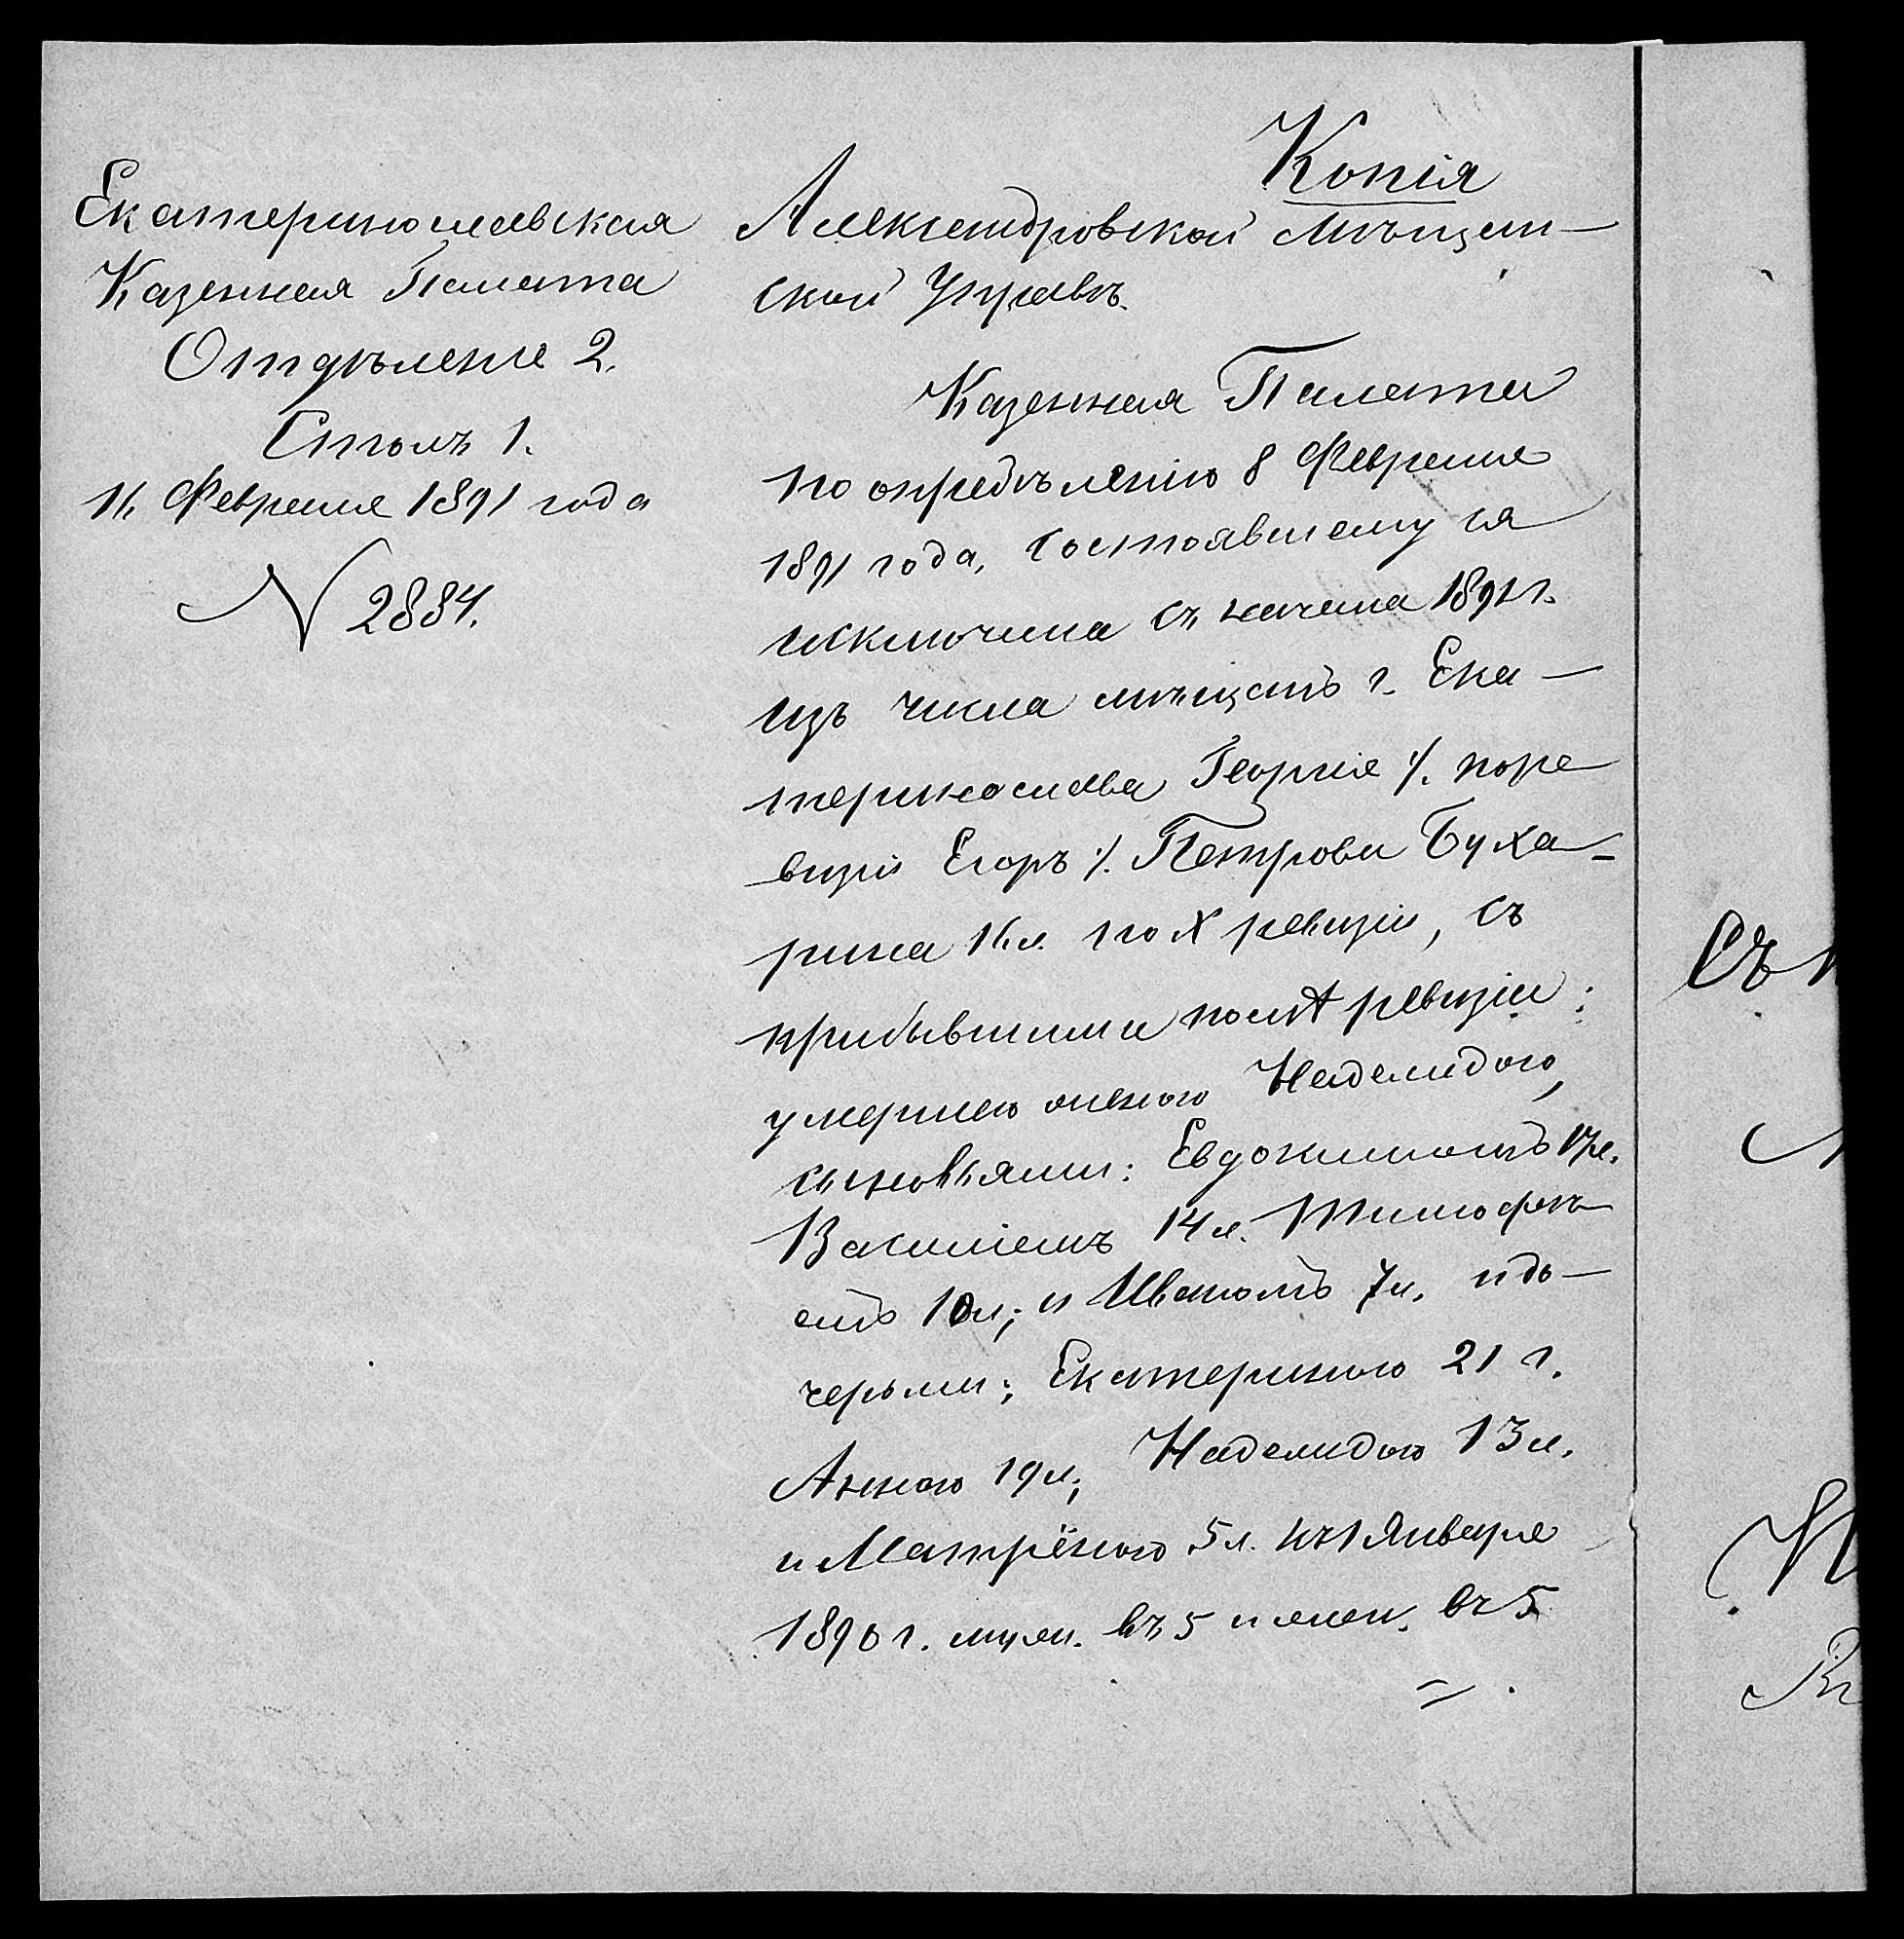 Копія
Екатеринославская
Казенная Палата
Отдѣленіе 2.
Столъ 1.
11 Февраля 1891 года
N 2884.
Александровской Мѣщан-
ской Управѣ.
Казенная Палата
по опредѣленію 8 Февраля
1891 года, состоявшемуся
исключила съ начала 1891 г.
изъ числа мѣщанъ г. Ека-
теринослава Георгія ./. по ре
визіи Егоръ ./. Петрова Буха-
рина 11 л. по X ревизіи, съ
прибывшими послѣ ревизіи:
умершею женою Надеждою,
сыновьями: Евдокимомъ 17 л.
Василіемъ 14 л. Тимофѣ
емъ 10 л; и Иваномъ 7 л. и до-
черьми; Екатериною 21 г.
Анною 19 л; Надеждою 13 л.
и Матрёною 5 л. къ 1 Января
1890 г. муж. въ 5 и жен. въ 5
съ